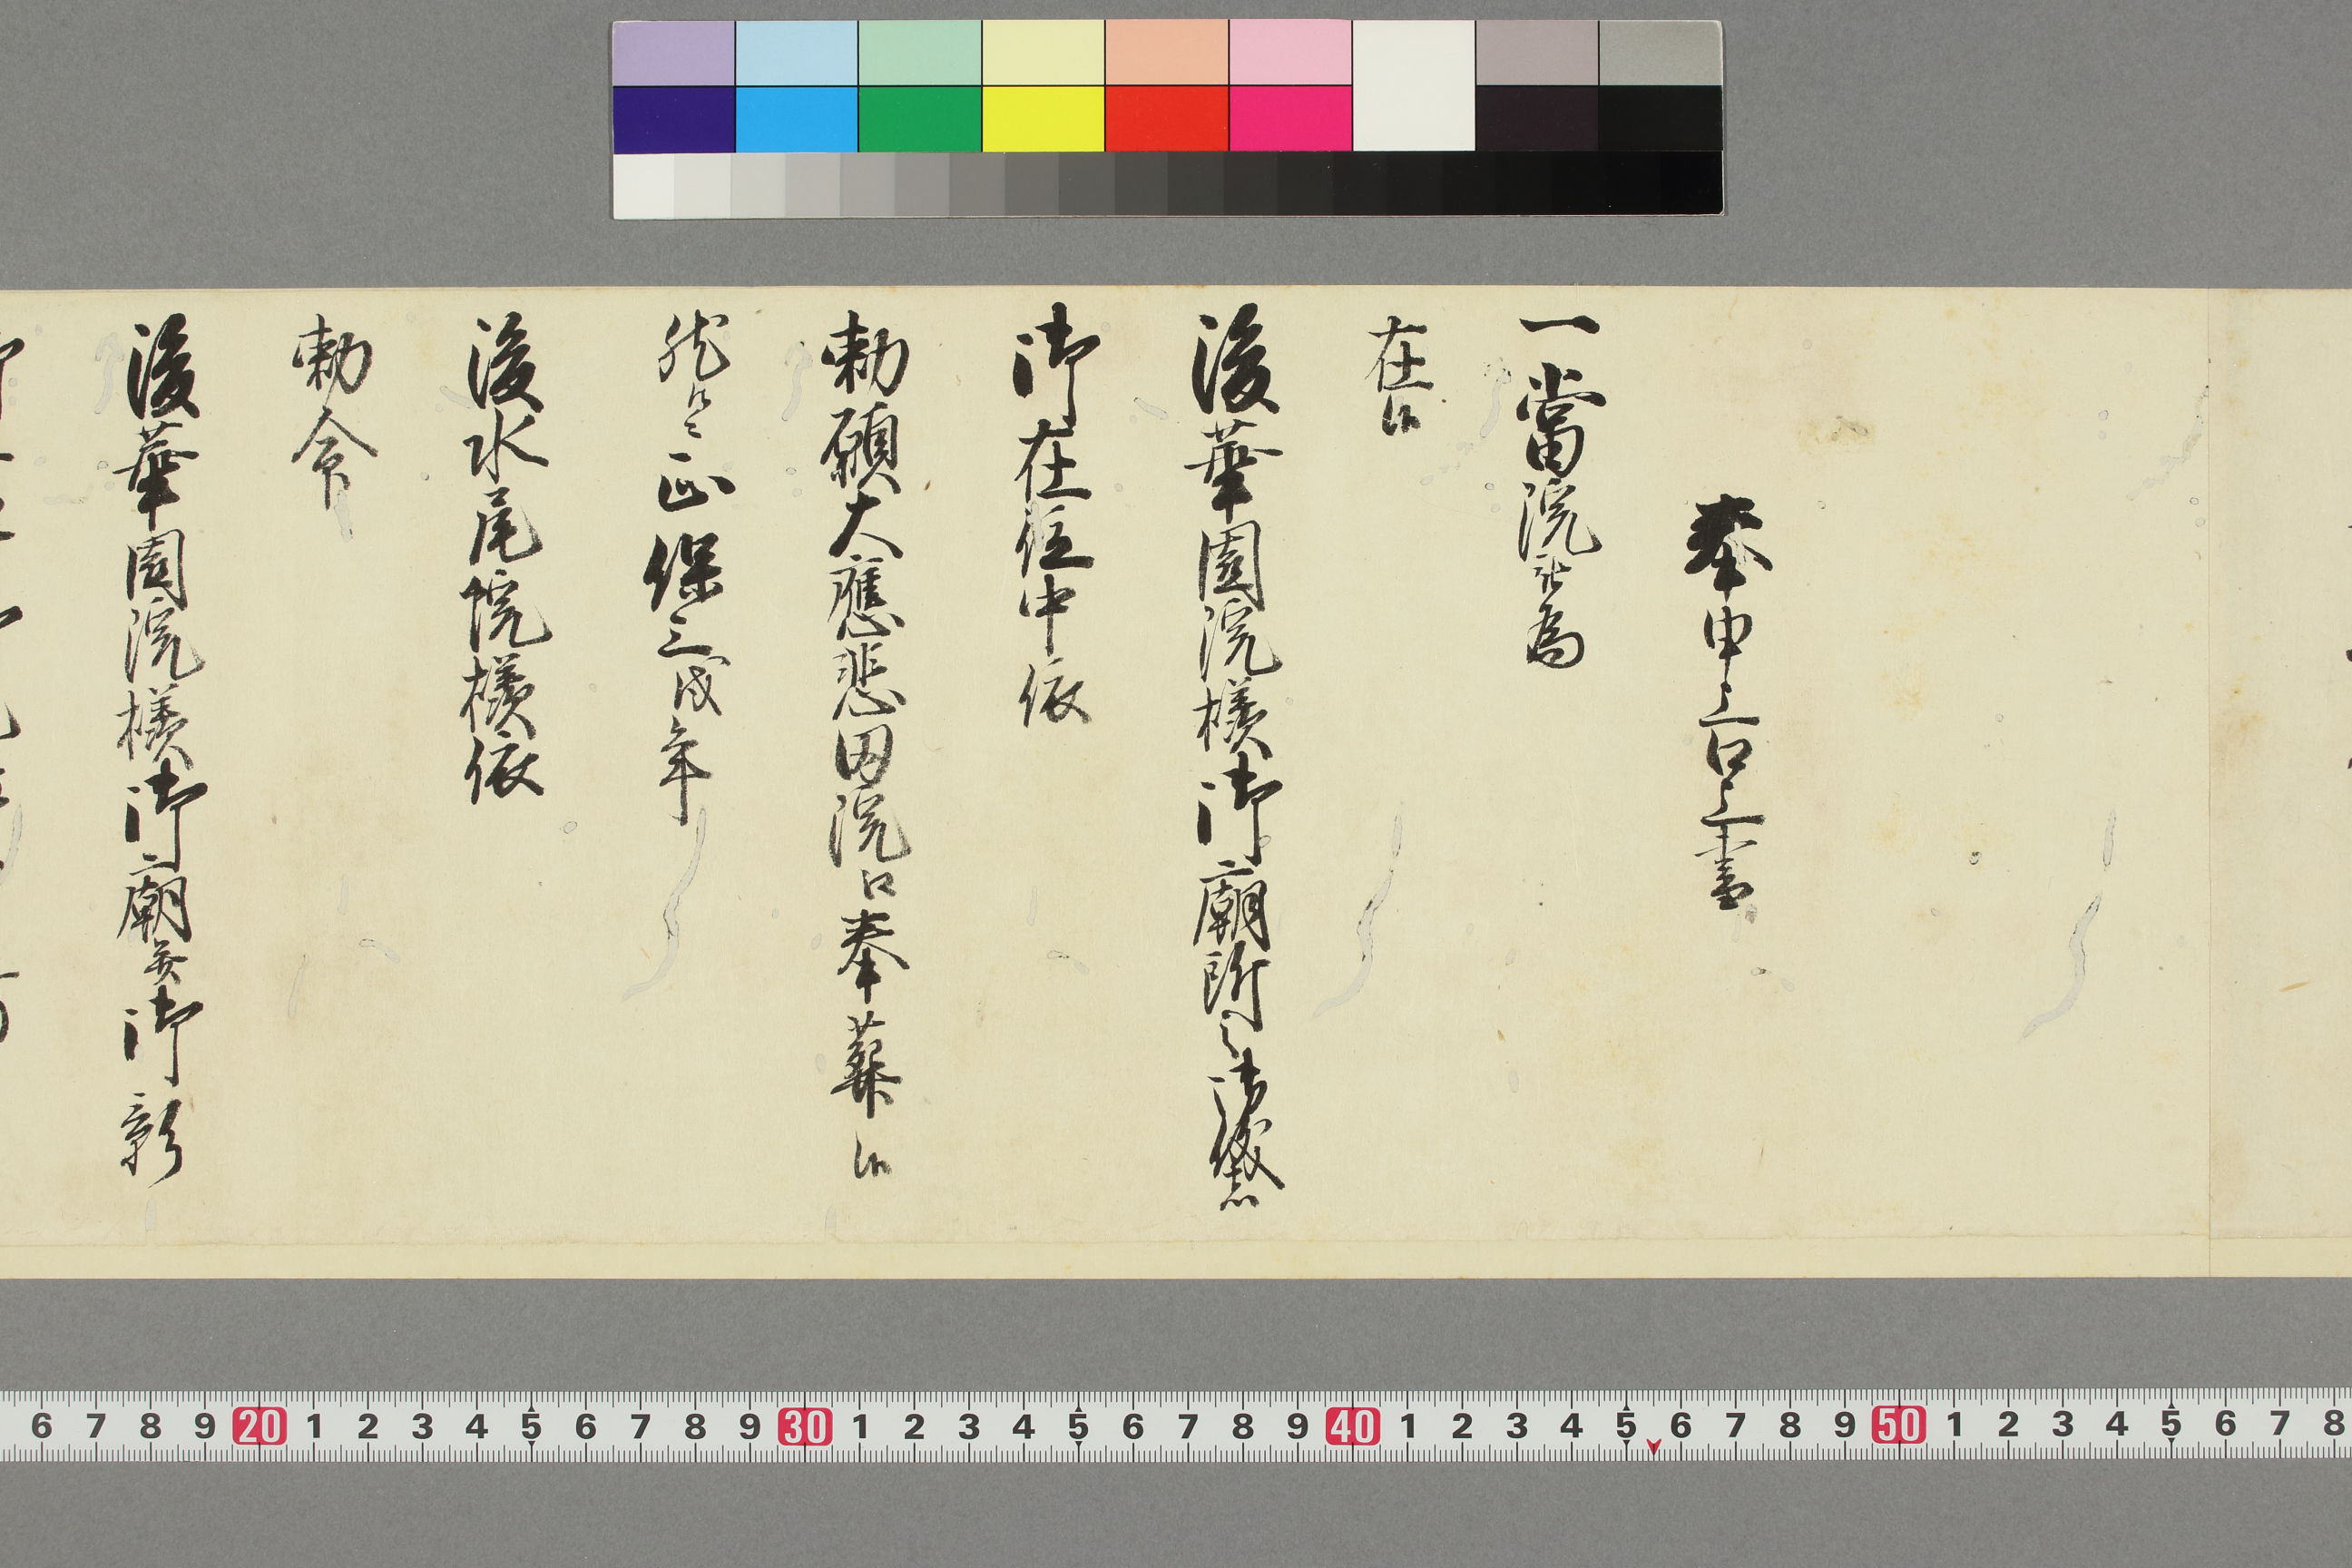 奉申上口上書
一當院被為
在候
後華園院様御廟所之御儀者
御在位中依
勅願大應悲田院江奉葬候
然處正保三戌年
後水尾院様依
勅命
後華園院様御廟并御影
6 7 8 9 20 1 2 3 4 5 6 7 8 9 30 1 2 3 4 5 6 7 8 9 40 1 2 3 4 5 6 7 8 9 50 1 2 3 4 5 6 7 8